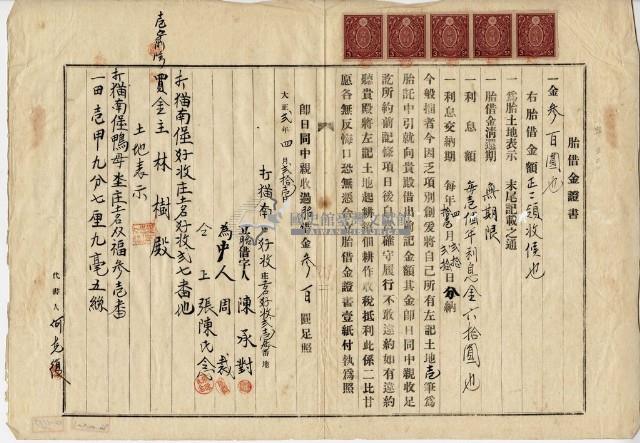 胎借金證書
一金參百圓也
右胎借金額正ニ領收候也
一為胎土地表示 末尾記載之通
一胎借金清還期 無期限
一利息金額 每壹個年利息金六拾圓也
一利息交納期 每年 四月 拾月 貳拾 日分納
今般拙者今因乏項別創爰將自己所有左記土地壹筆為
胎託中引就向貴殿借出前記金額其金即日同中親收足
訖所約前記條項日後自當確守履行不敢違約如有違約
聽貴殿將左記土地起耕別佃耕作收稅抵利此係二比甘
愿各無反悔口恐無憑立胎借金證書壹紙付執為照
即日同中親收過胎借金參百圓足照
大正貳年四月貳拾壹日
打猫南堡好收庄土名好收貳七番地
立胎借字人 陳承對
為中人 周裁
仝上 張陳氏
打猫南堡好收庄土名好收貳七番地
買金主 林樹 殿
土地表示
打猫南堡鴨母坔庄土名双福參壹番
一田壹甲九分七厘九毫五絲
代書人 何克復
國史館臺灣文獻館
TAIWAN HISTORICA